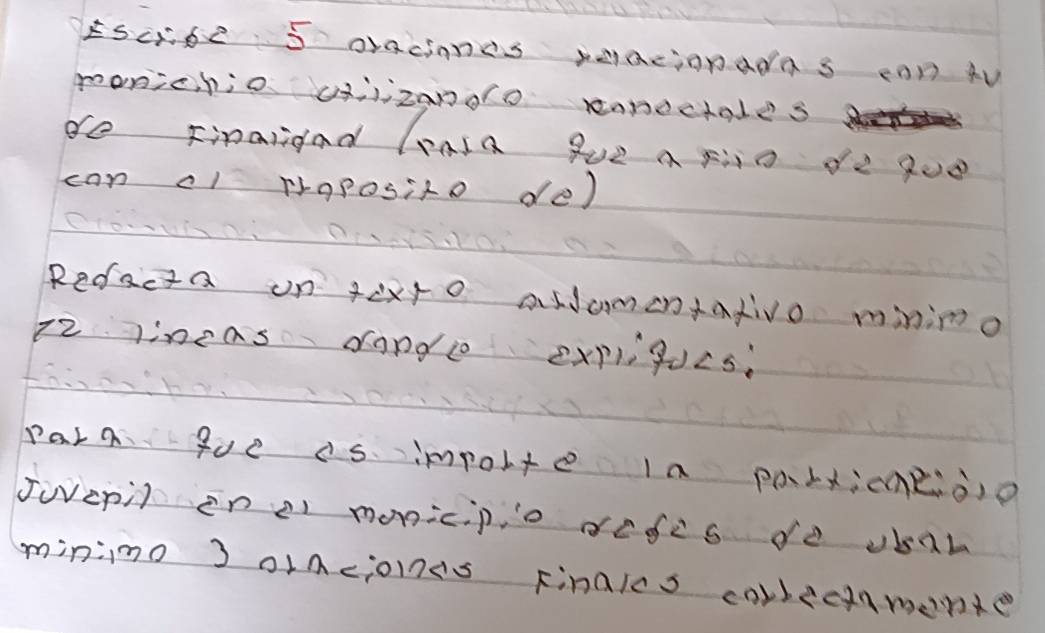 Escribe 5 oraciones relacionadas con tu
monicipio utilizando conectores
de Finalidad (para que a Fin de que
con el proposito de)
Redacta un texto argumentativo minimo
12 lineas donde expliques;
para que es importe la participación
Juvenil en el monicipio debes de usar
minimo 3 oraciones Finales correctamente